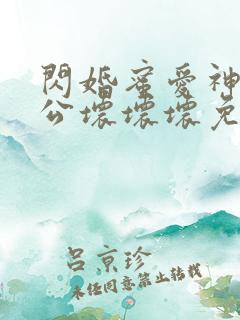 閃婚蜜愛神
公壞壞壞免
呂京珍
未經同意禁止轉載